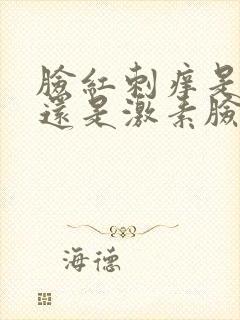 臉紅刺癢是
還是激素臉
海德